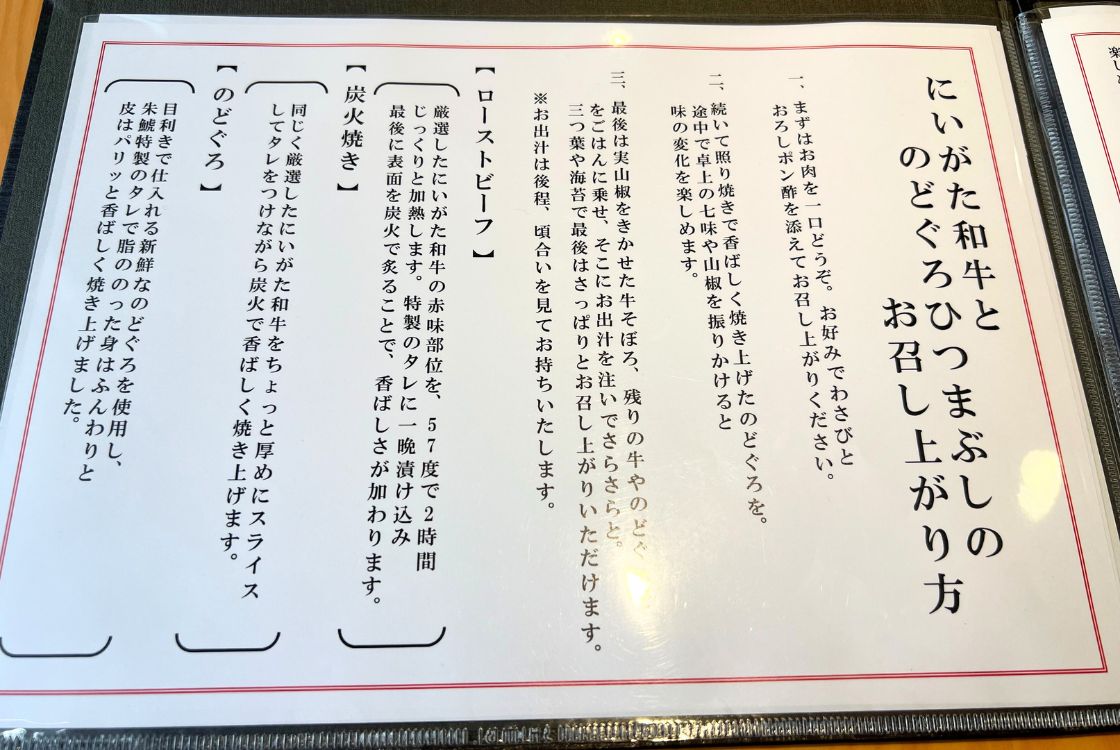 にいがた和牛と
のどぐろひつまぶしの
お召し上がり方
一、まずはお肉を一口どうぞ。お好みでわさびと
おろしポン酢を添えてお召し上がりください。
二、続いて照り焼きで香ばしく焼き上げたのどぐろを。
途中で卓上の七味や山椒を振りかけると
味の変化を楽しめます。
三、最後は実山椒をきかせた牛そぼろ、残りの牛やのどぐ
をごはんに乗せ、そこにお出汁を注いでさらさらと。
三つ葉や海苔で最後はさっぱりとお召し上がりいただけます。
※お出汁は後程、頃合いを見てお持ちいたします。
【ローストビーフ】
厳選したにいがた和牛の赤味部位を、57度で2時間
じっくりと加熱します。特製のタレに一晩漬け込み
最後に表面を炭火で炙ることで、香ばしさが加わります。
【炭火焼き】
同じく厳選したにいがた和牛をちょっと厚めにスライス
してタレをつけながら炭火で香ばしく焼き上げます。
【のどぐろ】
目利きで仕入れる新鮮なのどぐろを使用し、
朱鯱特製のタレで脂ののった身はふんわりと
皮はパリッと香ばしく焼き上げました。